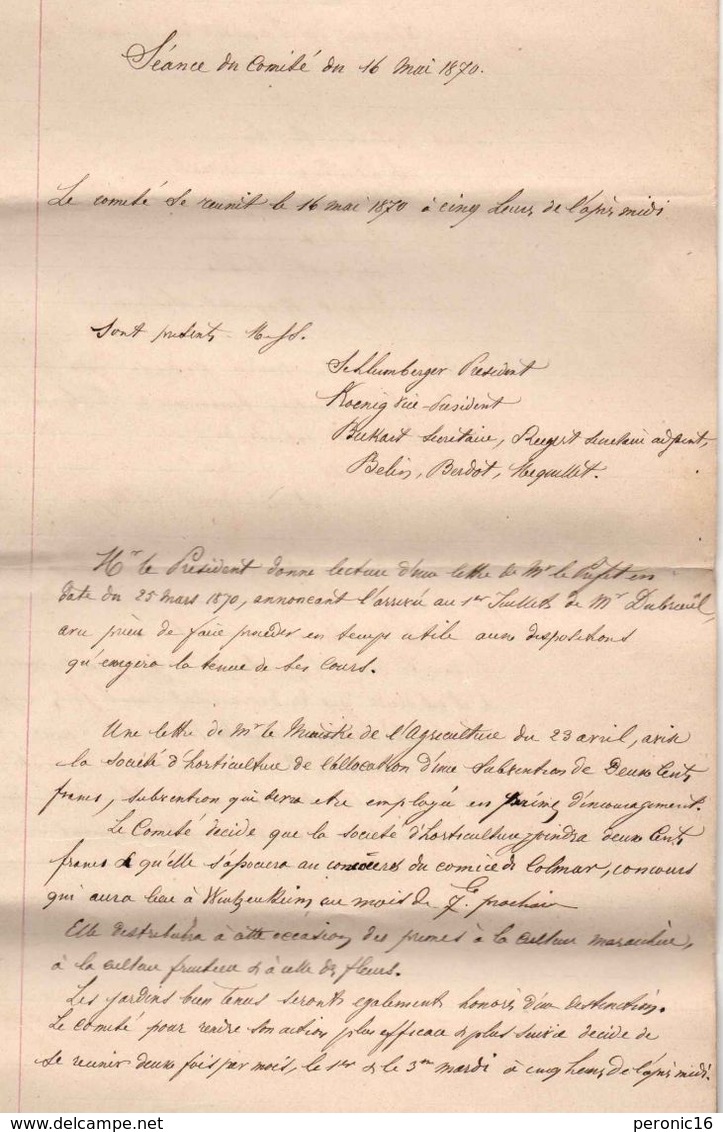 Séance du Comité du 16 Mai 1870.
Le comité se reunit le 16 mai 1870 à cinq heures de l'après midi
Sont présents M.SS.
Schlumberger Président
Koenig Vice-President
Secrétaire, secretaire adjoint,
Belin, Berdot, Mequillet.
Mr le Président donne lecture d'une lettre de Mr le Préfet en
date du 25 mars 1870, annoncant l'arrivée au 1er Juillet de Mr Dubreuil,
avec prière de faire proceder en temps utile aux dispositions
qu'exigera la tenue de ses cours.
Une lettre de Mr le Ministre de l'Agriculture du 23 avril, avise
la société d'horticulture de l'allocation d'une subvention de Deux Cents
francs, subvention qui devra etre employée en primes d'encouragement.
Le Comité décide que la société d'horticulture joindra deux Cents
francs & qu'elle s'associera au concours du comice de Colmar, concours
qui aura lieu à Wintzenheim au mois de 7bre prochain
Elle distribuera à cette occasion des primes à la culture maraichère,
à la culture fruitière & à celle des fleurs.
Les jardins bien tenus seront egalement honorés d'une distinction.
Le Comité pour rendre son action plus efficace & plus suivie decide de
se reunir deux fois par mois, le 1er & le 3me mardi à cinq heures de l'après midi.
peronic16